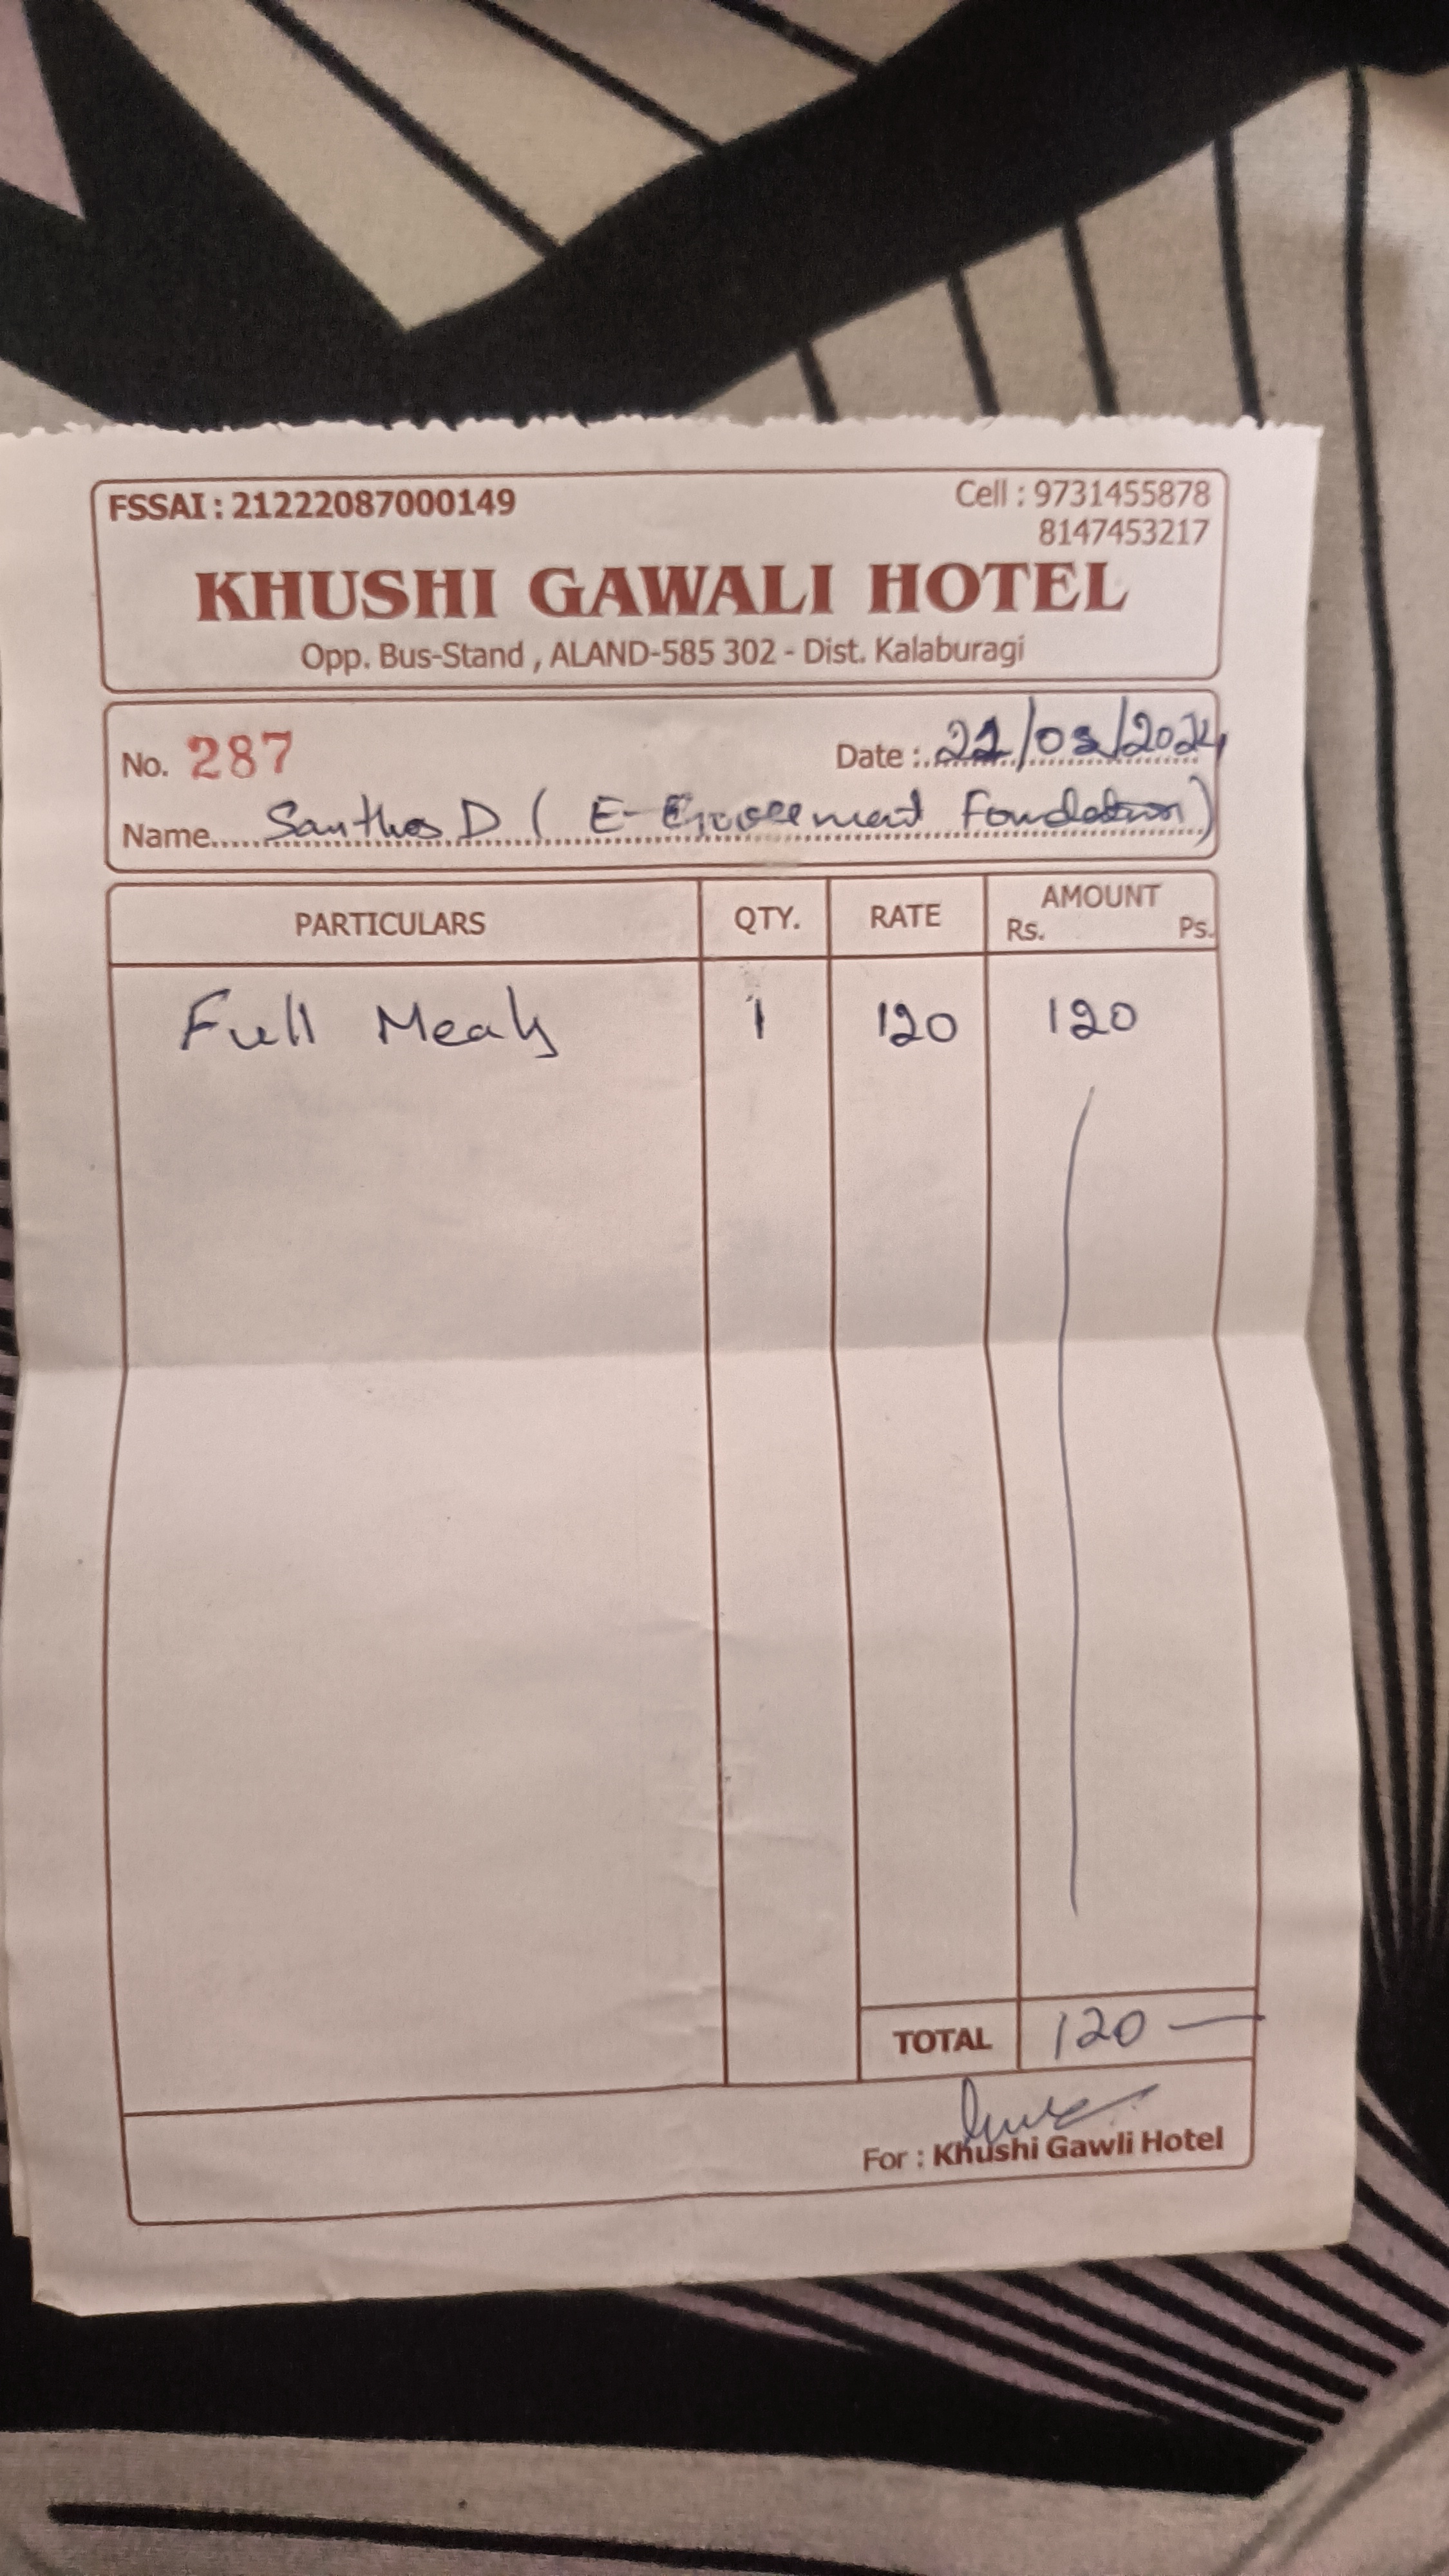 FSSAI : 21222087000149
Cell : 9731455878
8147453217
KHUSHI GAWALI HOTEL
Opp. Bus-Stand , ALAND-585 302 - Dist. Kalaburagi
No. 287
Date : /2024
Name Santhos D ( E- Foundation )
PARTICULARS QTY. RATE AMOUNT
Rs. Ps.
Full Meals 1 120 120
TOTAL 120 —
For : Khushi Gawli Hotel